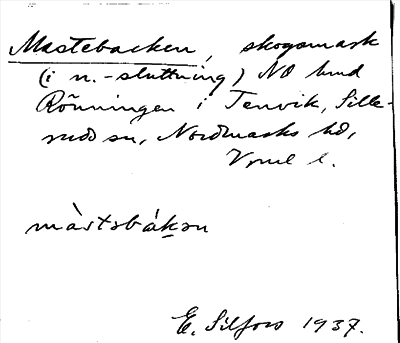 Mastebacken, skogsmark
(i n.-sluttning) NO
Rönningen i Tenvik, Sille-
rud sn, Nordmarks hd,
Vrml l.
màstəbákən
E. Silfors 1937.